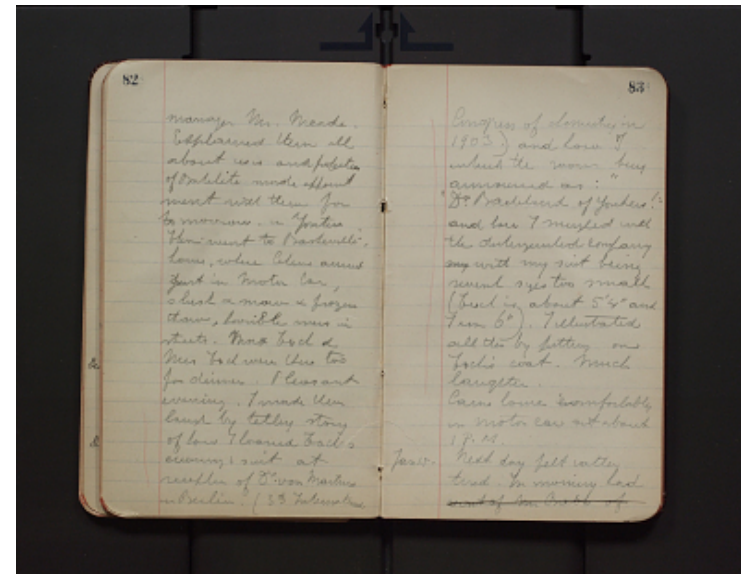 82
manager Mr. Meade.
Explained them all
about uses and
of Bakelite made appoint
ment with them for
tomorrow in Yonkers
Then went to Baskerville's
home, where Celine arrived
just in Motor Car,
slush & snow & frozen
thaw, horrible mess in
streets. &
Miss were there too
for dinner. Pleasant
evening. I made them
laugh by telling story
of how I loaned
evening suit at
reception of Dr. von Martius
in Berlin. (5th
83
Congress of chemistry in
1903.) and how I
entered the room being
announced as:
"Dr Baekeland of Yonkers!"
and how I mingled with
the distinguished company
with my suit being
several sizes too small
is about 5'4" and
I am 6°). I illustrated
all this by putting on
coat. Much
laughter.
Came home comfortably
in motor car at about
Next day felt rather
tired. In morning had